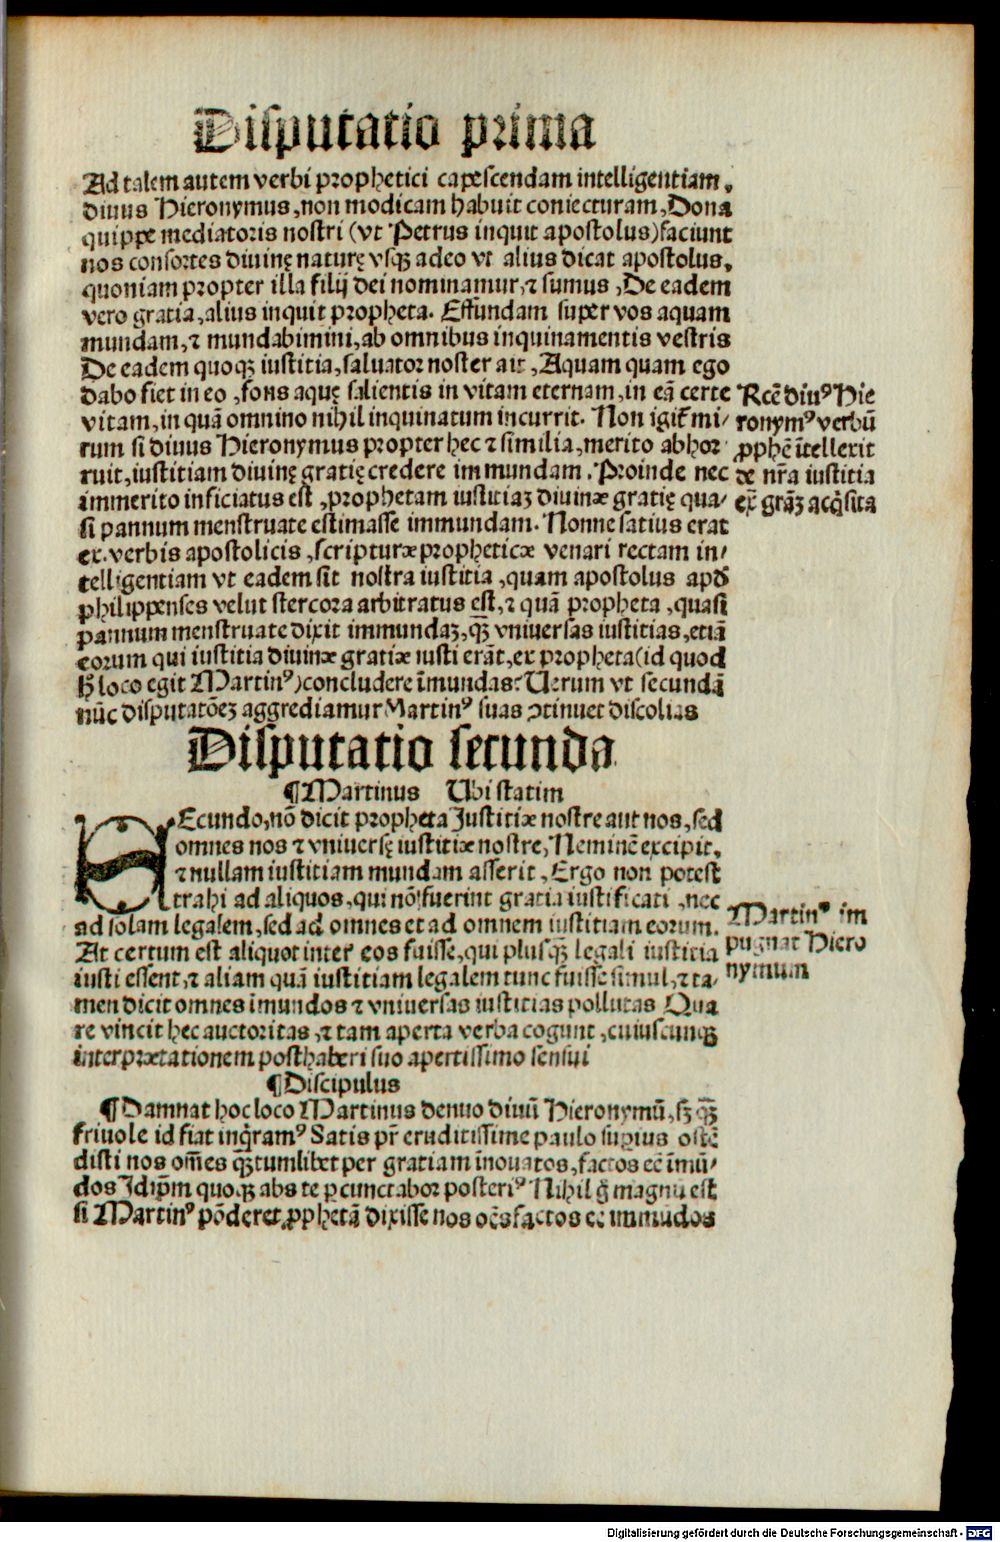 Disputatio prima
Ad talem autem verbi prophetici capescendam intelligentiam,
diuus Hieronymus, non modicam habuit coniecturam, Dona
quippe mediatoris nostri (vt Petrus inquit apostolus) faciunt
nos consortes diuinę naturę vsqꝫ adeo vt alius dicat apostolus,
quoniam propter illa filij dei nominamur, ⁊ sumus, De eadem
vero gratia, alius inquit propheta. Effundam super vos aquam
mundam, ⁊ mundabimini, ab omnibus inquinamentis vestris
De eadem quoqꝫ iustitia, saluator noster ait, Aquam quam ego
dabo fiet in eo, fons aquę salientis in vitam eternam, in eā certe
vitam, in quā omnino nihil inquinatum incurrit. Non igit̄ mi/
rum si diuus Hieronymus propter hec ⁊ similia, merito abhor
ruit, iustitiam diuinę gratię credere immundam. Proinde nec
immerito inficiatus est, prophetam iustitiaꝫ diuinæ gratię qua/
si pannum menstruate estimasse immundam. Nonne satius erat
ex. verbis apostolicis, scripturæ propheticæ venari rectam in/
telligentiam vt eadem sit nostra iustitia, quam apostolus apd̄
philippenses velut stercora arbitratus est, ⁊ quā propheta, quasi
pannum menstruate dixit immundaꝫ, qꝫ̄ vniuersas iustitias, etiā
eorum qui iustitia diuinæ gratiæ iusti erāt, ex propheta (id quod
hͦ loco egit Martinꝰ) concludere īmundas? Uerum vt secundā
nūc disputatōeꝫ aggrediamur Martinꝰ suas ↄtinuet discolias
Rectē diuꝰ Hie
ronymꝰ verbū
ꝓphē ītellexit
de nr̄a iustitia
ex gr̄aꝫ acq̄sita
Disputatio secunda
¶Martinus Ubi statim
SEcundo, nō dicit propheta Justitiæ nostre aut nos, sed
omnes nos ⁊ vniuersę iustitiæ nostre, Neminē excipit,
⁊ nullam iustitiam mundam asserit, Ergo non potest
trahi ad aliquos, qui nō fuerint gratia iustificati, nec
ad solam legalem, sed ad omnes et ad omnem iustitiam eorum.
At certum est aliquot inter eos fuisse, qui plusqꝫ̄ legali iusticia
iusti essent, ⁊ aliam quā iustitiam legalem tunc fuisse simul, ⁊ ta/
men dicit omnes īmundos ⁊ vniuersas iustitias pollutas Qua
re vincit hec auctoritas, ⁊ tam aperta verba cogunt, cuiuscunqꝫ
interpretationem posthaberi suo apertissimo sensui
Martinꝰ im
pugnat Hiero
nymum
¶Discipulus
¶Damnat hoc loco Martinus denuo diuū Hieronymū, sꝫ qꝫ̄
friuole id fiat inq̄ramꝰ Satis pr̄ eruditissime paulo supius ostē
disti nos om̄es qꝫ̄tumlibet per gratiam īnouatos, factos eē īmū/
dos Jdip̄m quoqꝫ abs te ꝑcunctabor posteriꝰ Nihil ḡ magnū est
si Martinꝰ pōderet, ꝓphetā dixisse nos oēs factos eē immūdos
Digitalisierung gefördert durch die Deutsche Forschungsgemeinschaft - DFG